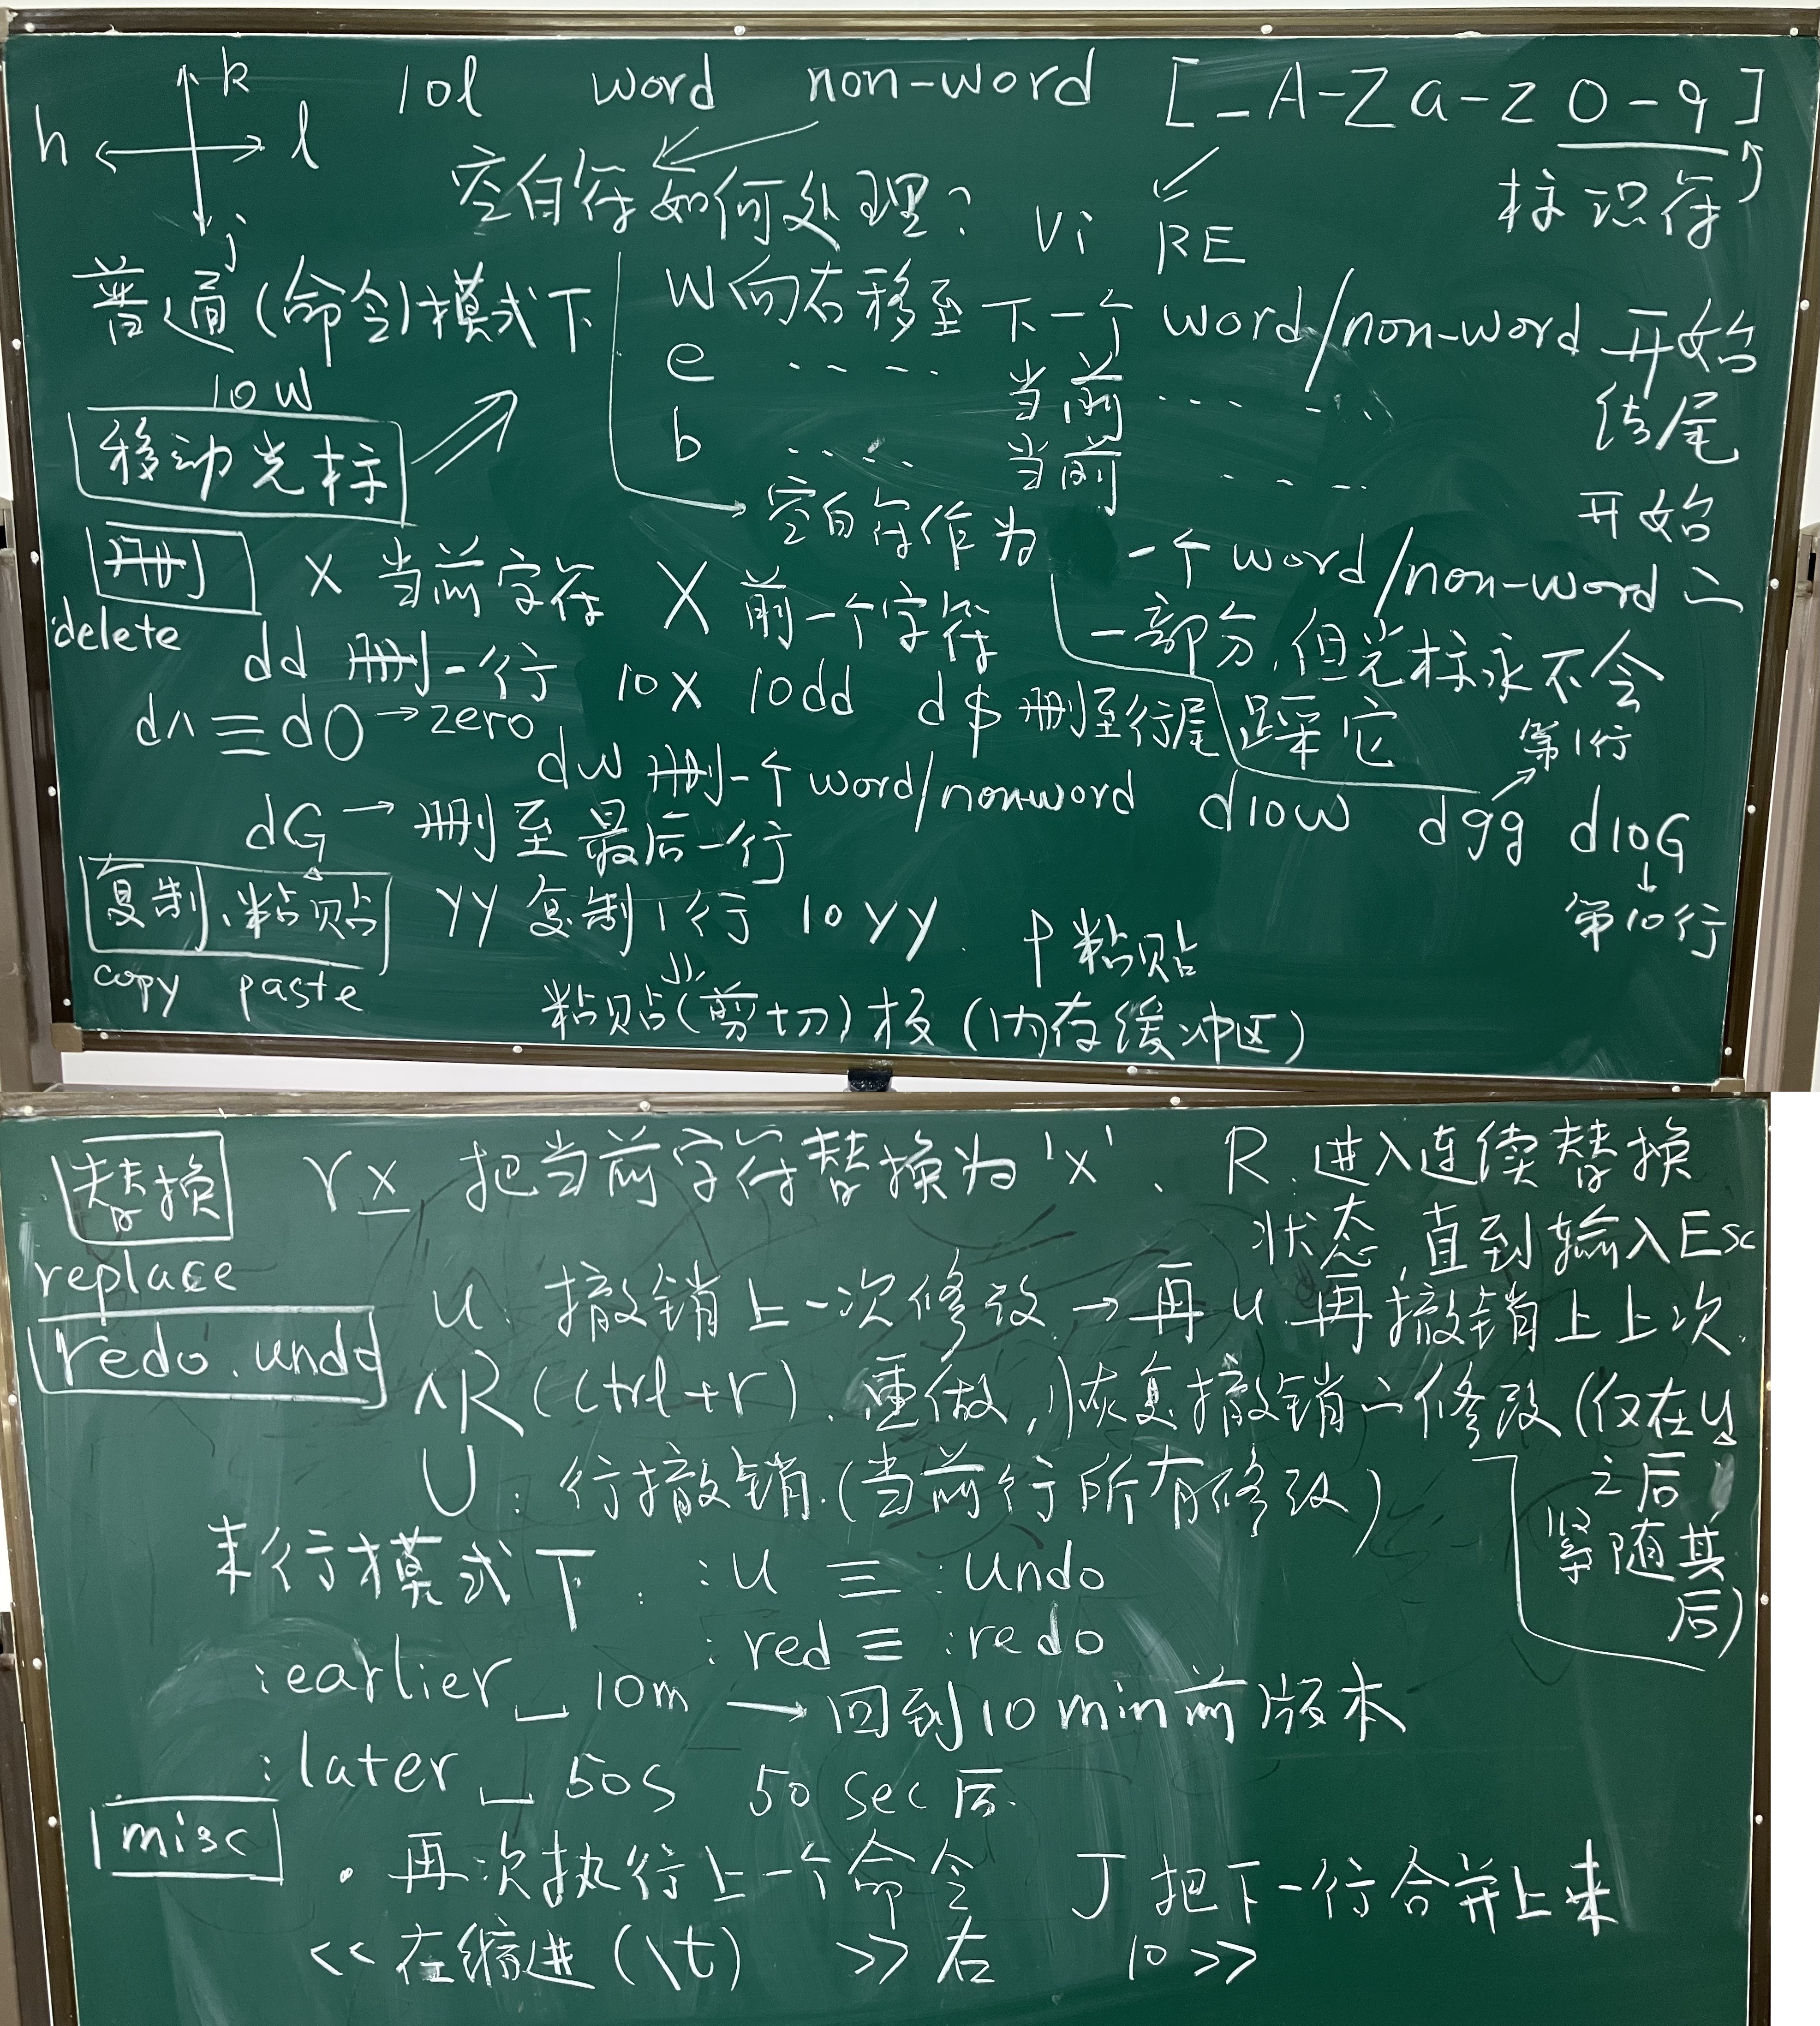 k
h l
j
10l word non-word [_A-Za-z0-9]
空白符如何处理? Vi RE 标识符
普通(命令)模式下
w 向右移至下一个 word/non-word 开始
e ..... 当前 .... .... 结尾
b ..... 当前 .... 开始
10w
移动光标
空白符作为一个 word/non-word 之
一部分,但光标永不会
踩它
删 x 当前字符 X 前一个字符
delete
dd 删一行 10x 10dd d$ 删至行尾
d^ ≡ d0 → zero
dw 删一个 word/nonword d10w dgg d10G
第1行
第10行
dG → 删至最后一行
复制、粘贴 yy 复制1行 10yy. p 粘贴
copy paste
粘贴(剪切)板 (内存缓冲区)
替换 rx 把当前字符替换为'x'、 R. 进入连续替换
状态,直到输入Esc
replace
redo. undo
u: 撤销上一次修改. → 再u 再撤销上上次.
^R (Ctrl+r). 重做,恢复撤销之修改 (仅在u
之后
紧随其
后)
U: 行撤销.(当前行所有修改)
末行模式下: :u ≡ :undo
:red ≡ :redo
:earlier␣10m → 回到10min前版本
:later␣50s 50sec后.
misc
. 再次执行上一个命令 J 把下一行合并上来
<< 在缩进(\t) >> 右 10>>